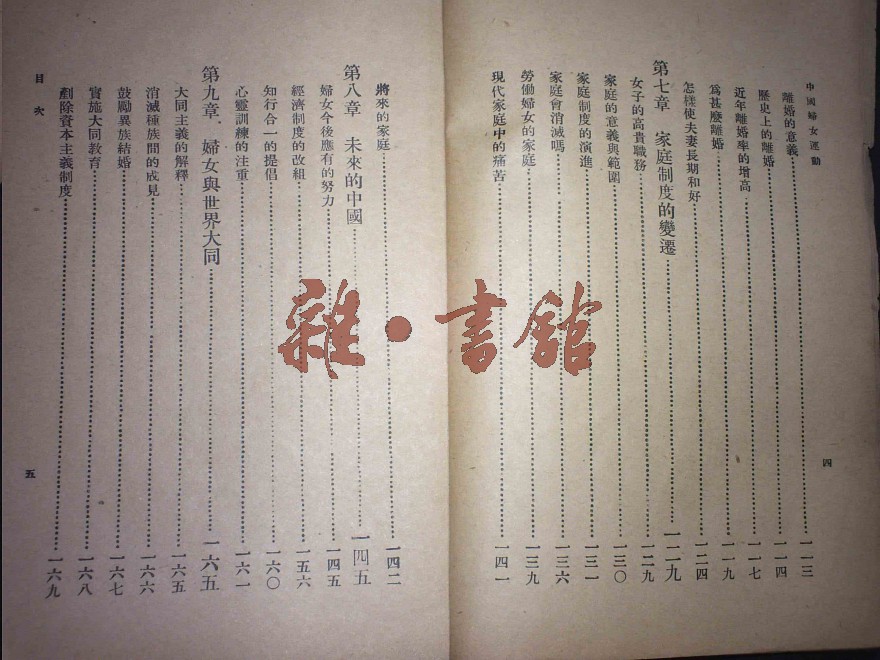 中國婦女運動
離婚的意義……一一三
歷史上的離婚……一一四
近年離婚率的增高……一一七
爲甚麼離婚……一一九
怎樣使夫妻長期和好……一二四
第七章 家庭制度的變遷……一二九
女子的高貴職務……一二九
家庭的意義與範圍……一三〇
家庭制度的演進……一三一
家庭會消滅嗎……一三六
勞働婦女的家庭……一三九
現代家庭中的痛苦……一四一
四
將來的家庭……一四二
第八章 未來的中國……一四五
婦女今後應有的努力……一四五
經濟制度的改組……一五六
知行合一的提倡……一六〇
心靈訓練的注重……一六一
第九章、婦女與世界大同……一六五
大同主義的解釋……一六五
消滅種族間的成見……一六六
鼓勵異族結婚……一六七
實施大同教育……一六八
剷除資本主義制度……一六九
目次
五
雜·書館